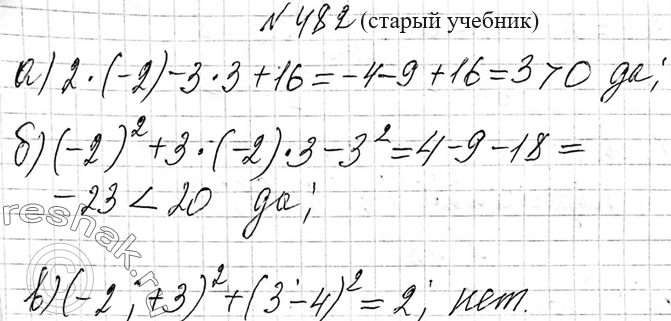 № 482 (старый учебник)
а) 2·(-2)-3·3+16=-4-9+16=3>0 да;
б) (-2)²+3·(-2)·3-3²=4-9-18=
-23<20 да;
reshak.ru
в) (-2+3)²+(3-4)²=2; нет.